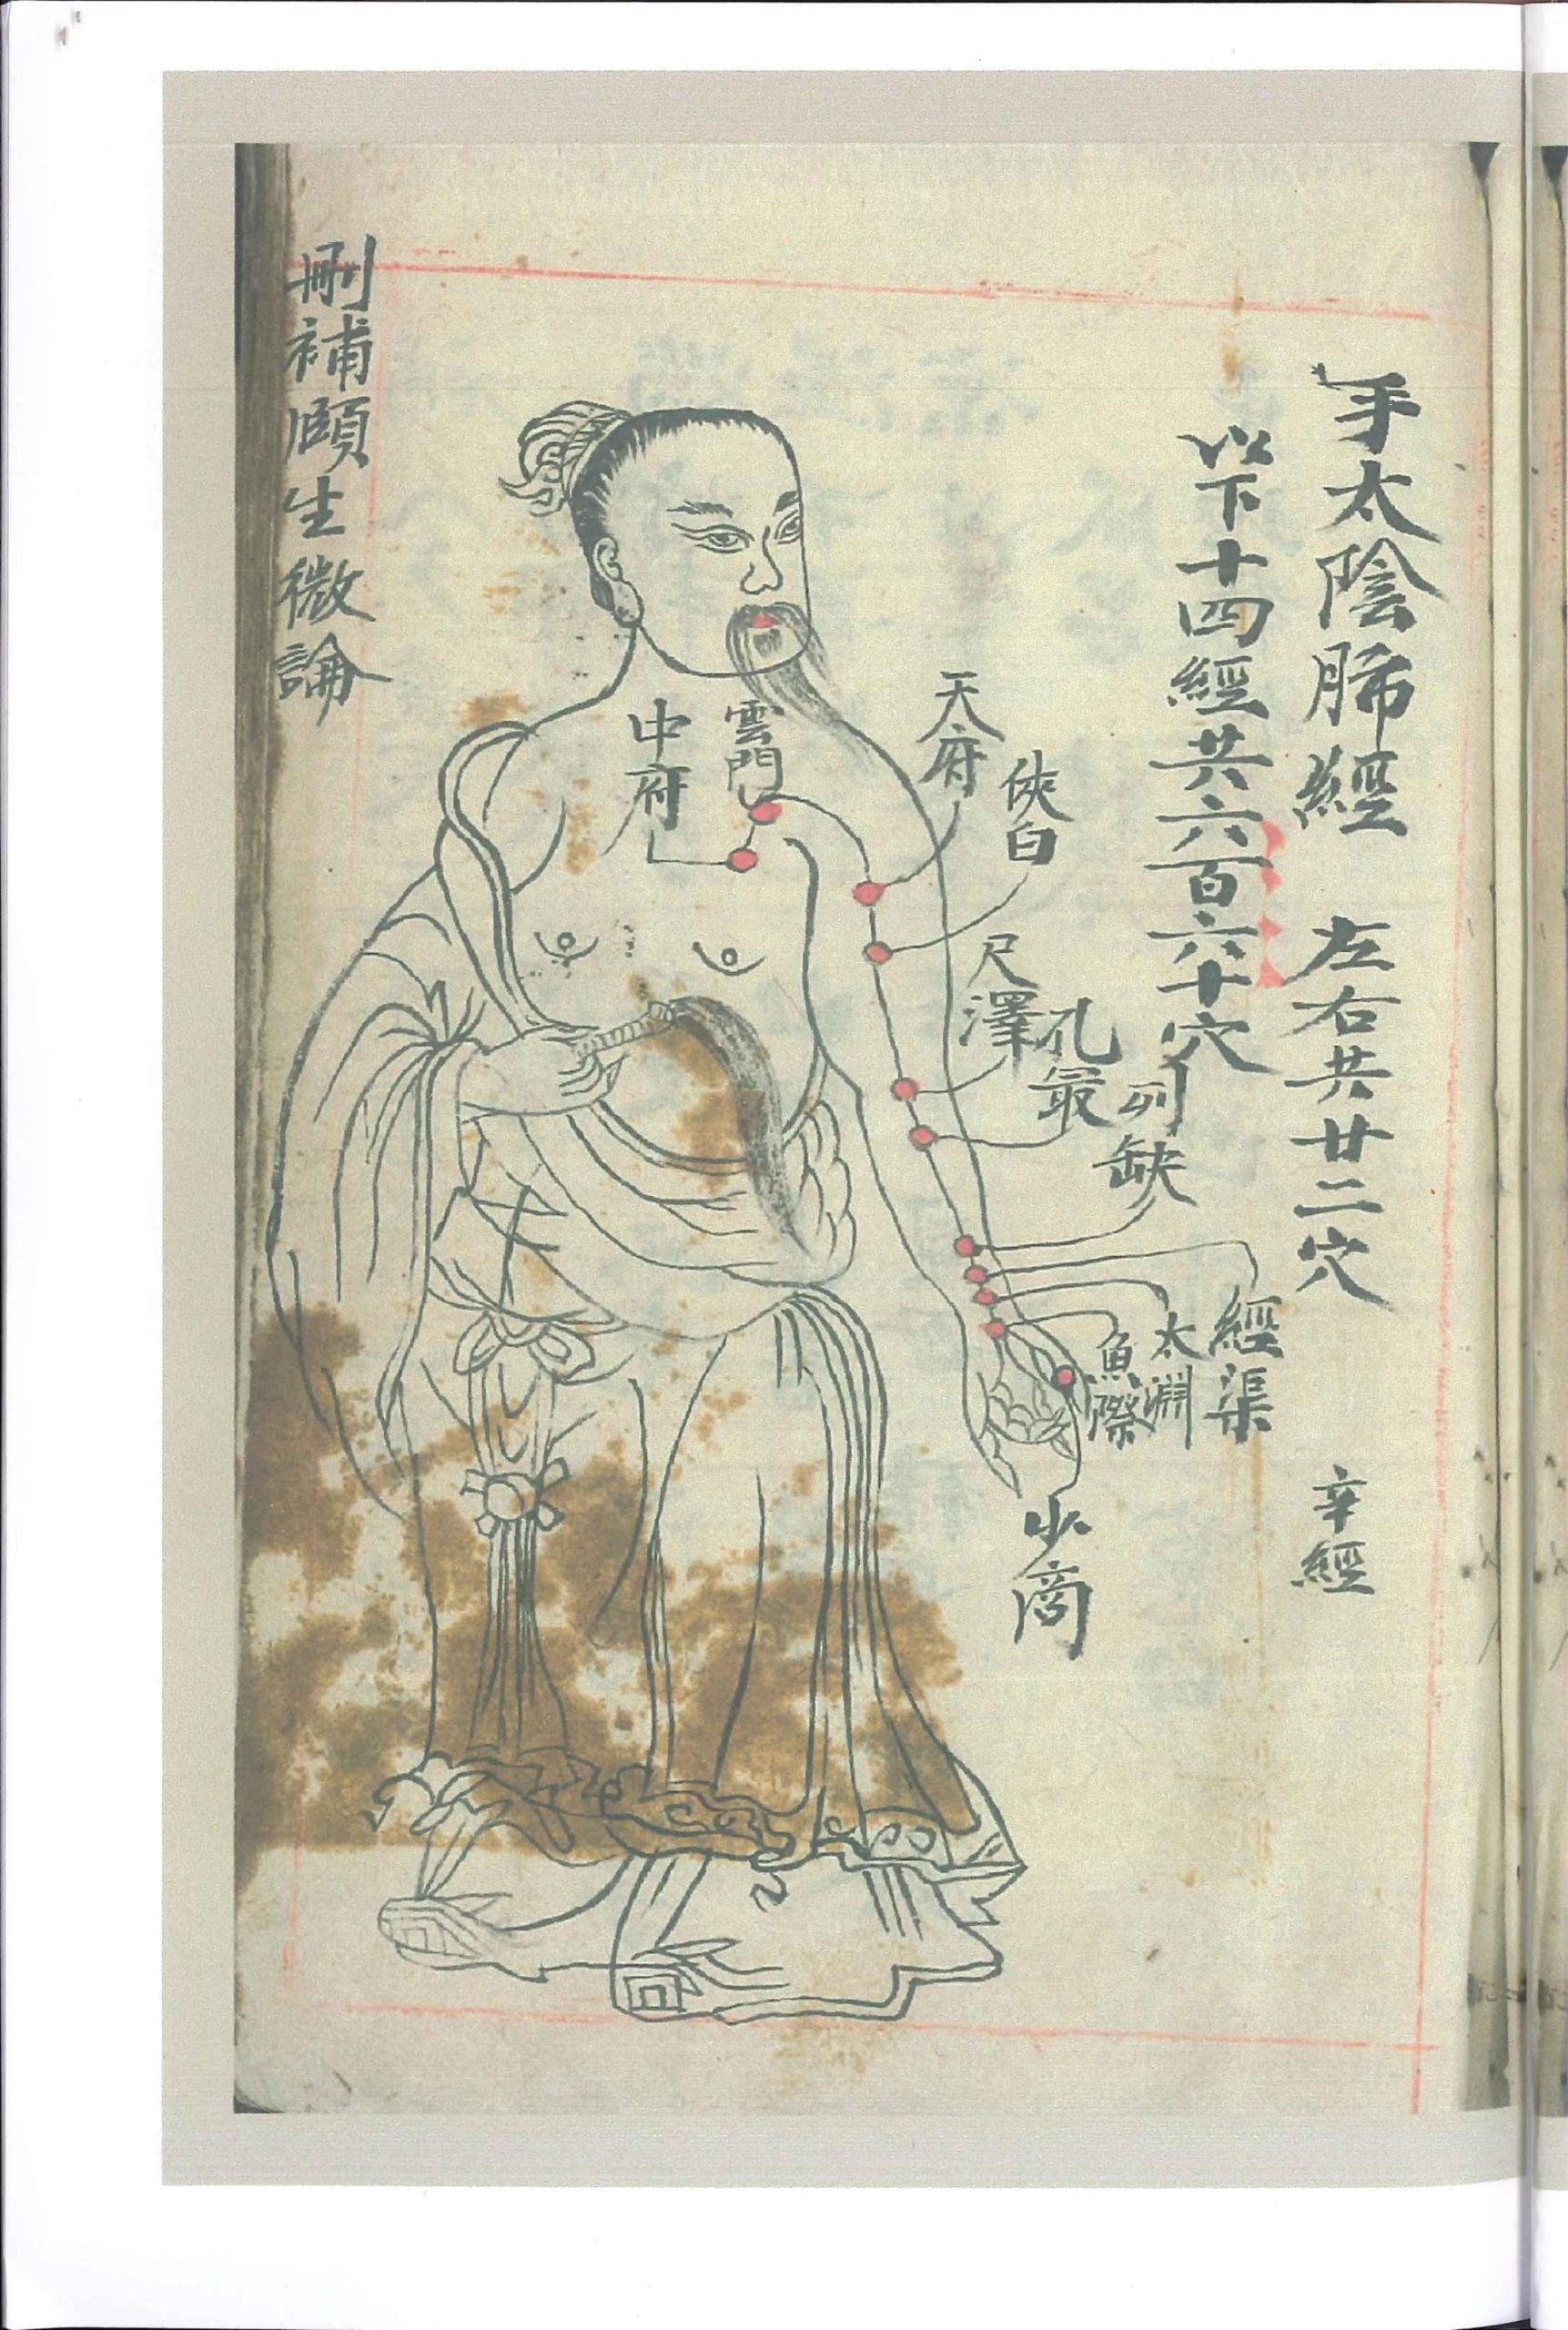 手太陰肺經 左右共廿二穴 辛經
以下十四經共六百六十穴
經渠
太淵
魚際
列缺
孔最
尺澤
俠白
天府
少商
雲門
中府
刪補頤生微論